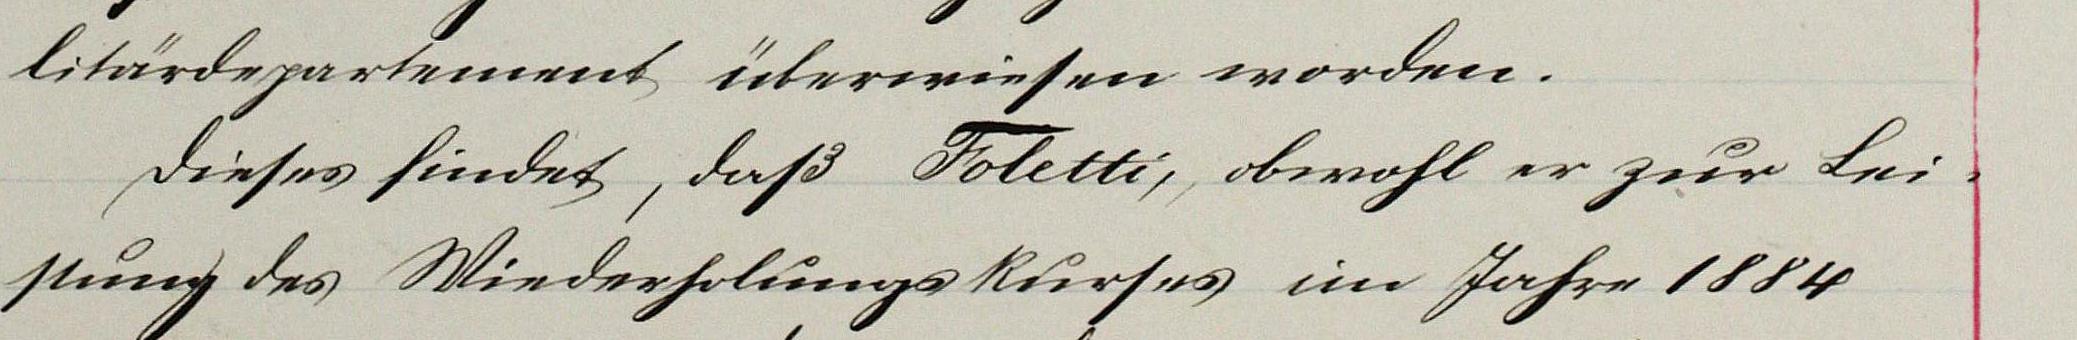 litärdepartement überwiesen worden.
Dieses findet, daß Foletti, obwohl er zur Lei-
stung des Wiederholungskurses im Jahre 1884